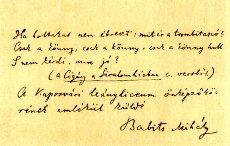 Ha lelkeket nem ébreszt: mit ér a trombitaszó?
Csak a könny, csak a könny, csak a könny hull
S nem kérdi, mire jó?
(a Cigány a siralomházban c. versből)
A Kaposvári leánylíceum önképzőkö-
rének emlékül küldi
Babits Mihály